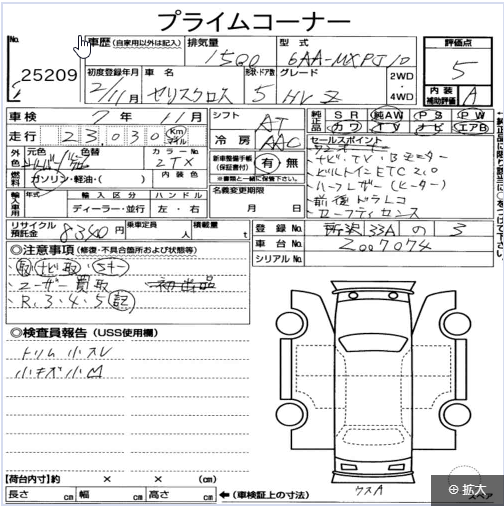 プライムコーナー
No. 25209
車歴 (自家用以外は記入)
排気量 1500
型式 6AA-MXPJ10
評価点 5
内装補助評価 A
初度登録年月 2/11月
車名 ヤリスクロス
形状・ドア数 5
グレード HV Z
2WD・4WD
車検 7年11月
シフト AT
純正品 SR 純AW PS PW
カワ TV ナビ エアB
走行 23,030 Km マイル
冷房 AAC
セールスポイント
外色 元色 色替
カラーNo. 2TX
新車整備手帳(保証書付) 有・無
※書類と一緒に保管して下さい。
ナビ・TV・Bモニター
燃料 ガソリン・軽油・( )
内装色
ビルトインETC2.0
輸入車用 年式 輸入区分 ハンドル
ディーラー・並行 左・右
名義変更期限
月 日
ハーフレザー(ヒーター)
前後ドラレコ
セーフティセンス
リサイクル預託金 8,340円
乗車定員 人
積載量 t
登録No. 所沢 33A の 3
車台No. 2007074
シリアルNo.
◎注意事項 (修復・不具合箇所および状態等)
・取 ナビ取・Sキー
・ユーザー買取 初出品
・R.3.4.5記
◎検査員報告 (USS使用欄)
トリム小スレ
小キズ小凹
【荷台内寸】約 × × (cm)
長さ cm 幅 cm 高さ cm
(車検証上の寸法)
ケスA
スペア
拡大
←純正品に限り該当に○をつけて下さい。